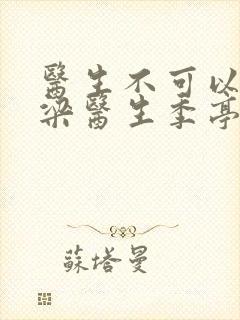 醫生不可以
梁醫生季亭
蘇塔曼